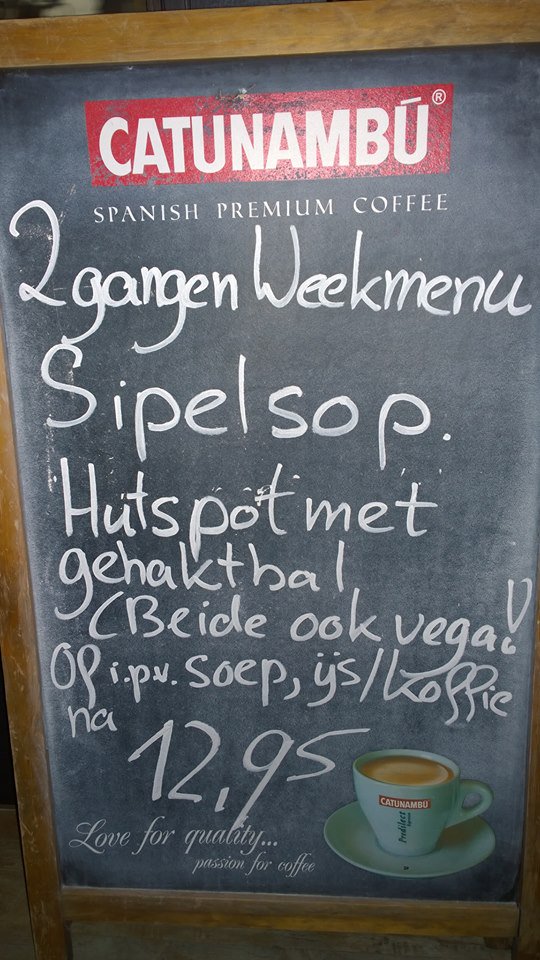 CATUNAMBÚ®
SPANISH PREMIUM COFFEE
2 gangen Weekmenu
Sipelsop.
Hutspot met
gehaktbal
(Beide ook vega!)
Of i.p.v. soep, ijs/koffie
na
12,95
Love for quality...
passion for coffee
CATUNAMBÚ
Predilect